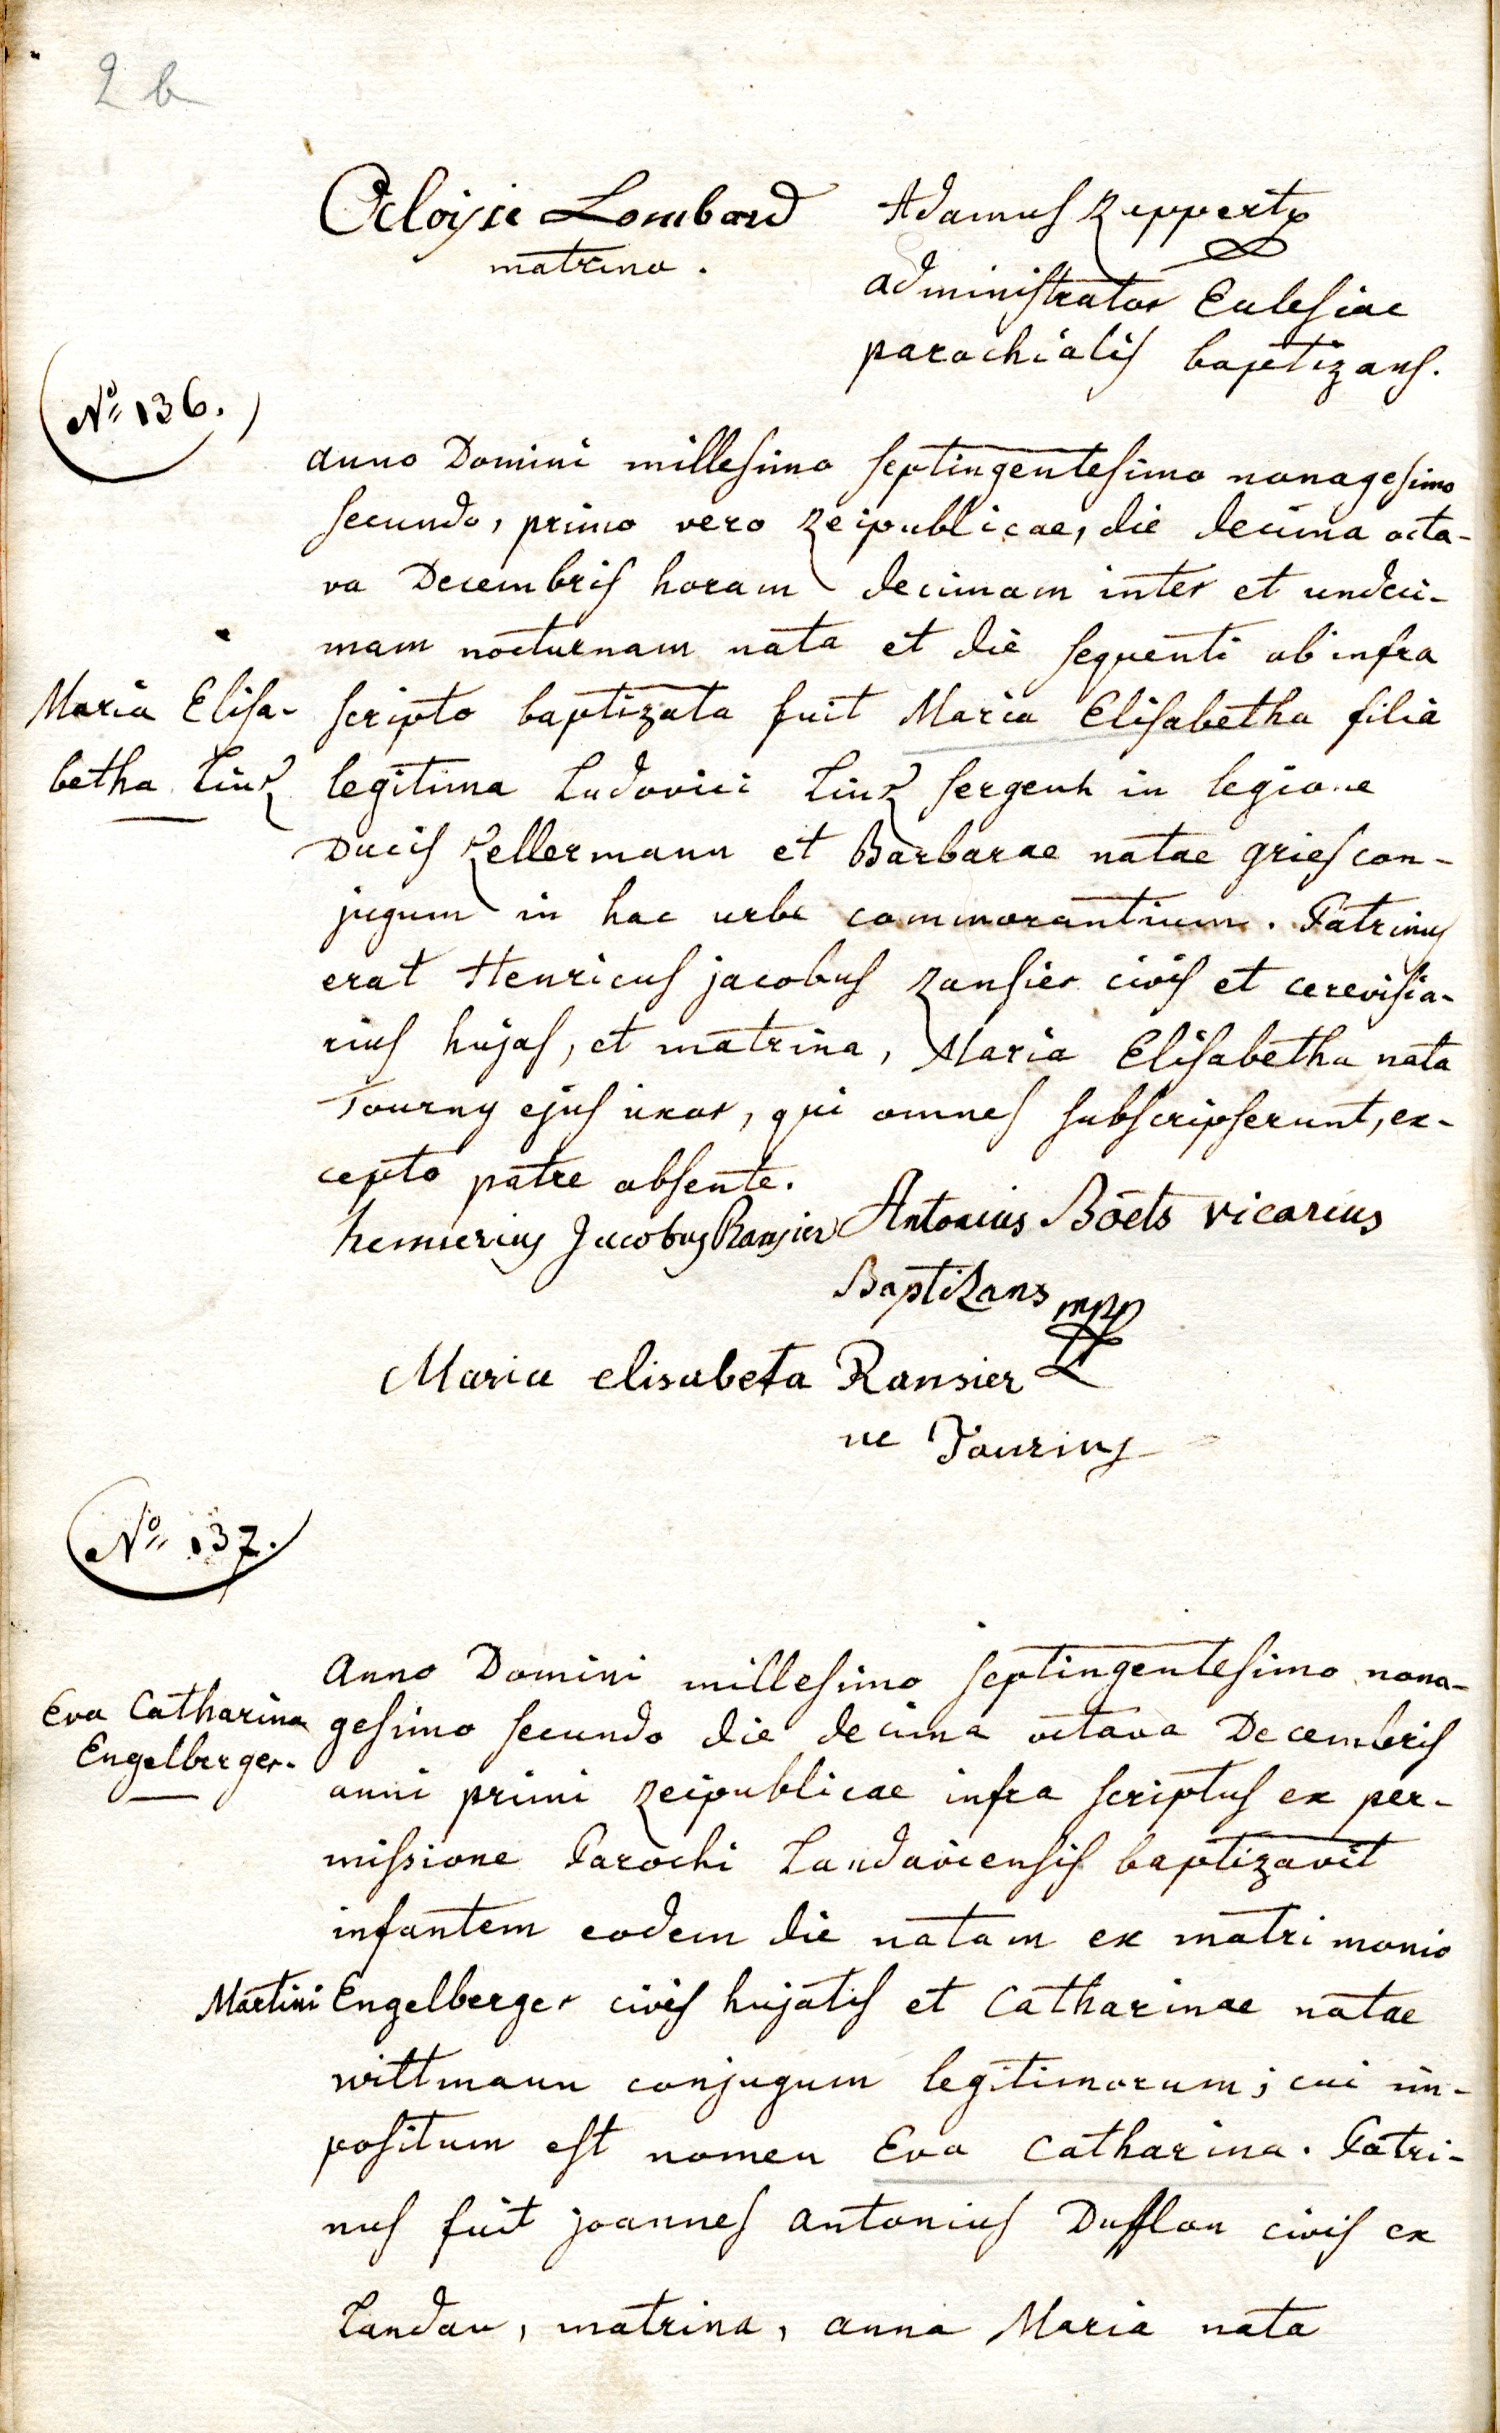 2 b
Aloisie Lombard
matrina.
Adamus Ruppertz
administrator Eclesiae
parochialis baptizans.
No 136.
anno Domini millesimo septingentesimo nonagesimo
secundo, primo vero Reipublicae, die decima octa-
va Decembris horam decimam inter et undeci-
mam nocturnam nata et die sequenti ab infra
Maria Elisa-
betha Link
scripto baptizata fuit Maria Elisabetha filia
legitima Ludovici Link sergent in legione
Ducis Kellermann et Barbarae natae gries con-
jugum in hac urbe commorantium. Patrinus
erat Henricus jacobus Ransier civis et cerevisia-
rius hujas, et matrina, Maria Elisabetha nata
Tourny ejus uxor, qui omnes subscripserunt, ex-
cepto patre absente.
henricus Jacobus Ransier
Antonius Böets vicarius
Baptizans mpp
Maria elisabeta Ransier
ne Touriny
No 137.
Eva Catharina
Engelberger.
Anno Domini millesimo septingentesimo nona-
gesimo secundo die decima octava Decembris
anni primi Reipublicae infra scriptus ex per-
missione Parochi Landaviensis baptizavit
infantem eodem die natam ex matrimonio
Martini Engelberger civis hujatis et Catharinae natae
wittmann conjugum legitimorum; cui im-
positum est nomen Eva Catharina. Patri-
nus fuit joannes antonius Dufflon civis ex
Landau, matrina, anna Maria nata